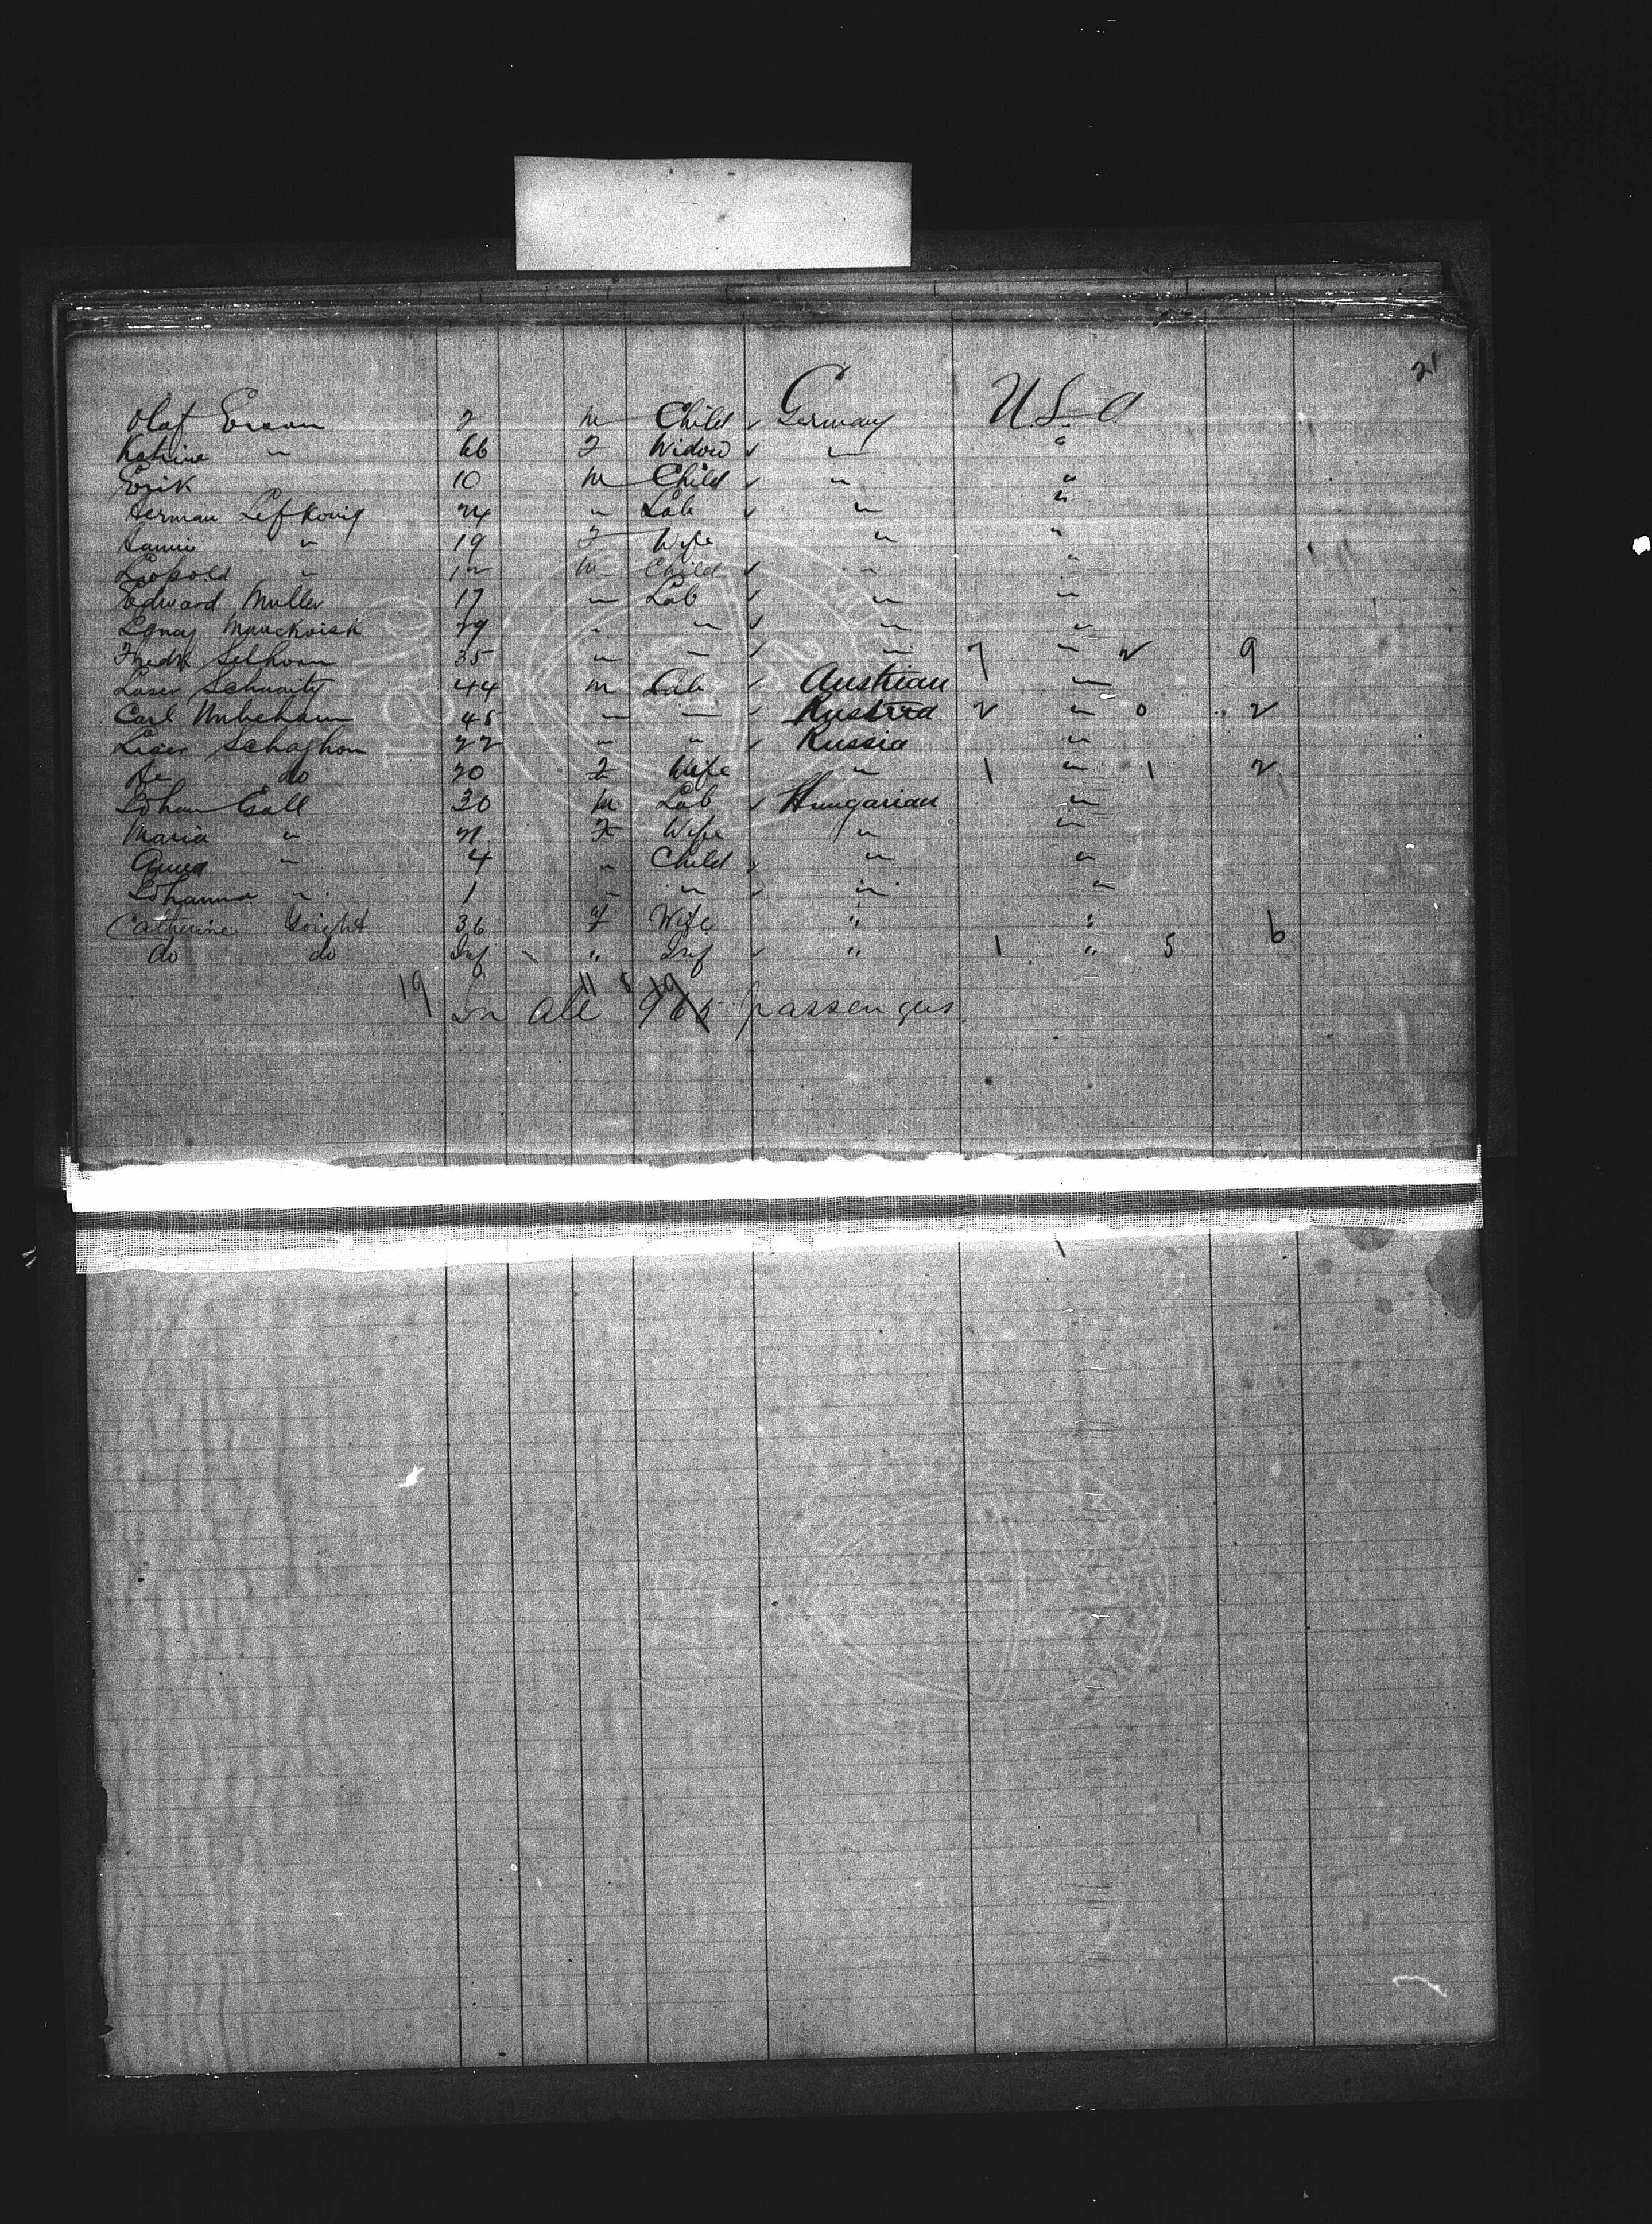 21
Olaf Ersson 2 M Child ✓ Germany U.S.A
Katrine " 66 F Widow ✓ " "
Erik 10 M Child ✓ " "
Herman Lefkovig 24 " Lab ✓ " "
Hannie " 19 F Wife " "
Leopold " M Child ✓ " "
Edward Muller 17 " Lab ✓ " "
29 " " ✓ " "
Fredk 35 " " ✓ " 7 " 2 9
Laser 44 M Lab ✓ Austrian "
Carl 45 " " ✓ 2 " 0 2
22 " " ✓ Russia "
do 20 F Wife " 1 " 1 2
Johan Gall 30 M Lab ✓ Hungarian "
Maria " 21 F Wife " "
Anna " 4 " Child ✓ " "
Johanna " 1 " " ✓ " "
Catherine 36 F Wife " "
do do Inf " Inf ✓ " 1 " 5 6
19 11 8 19
In all 965 passengers